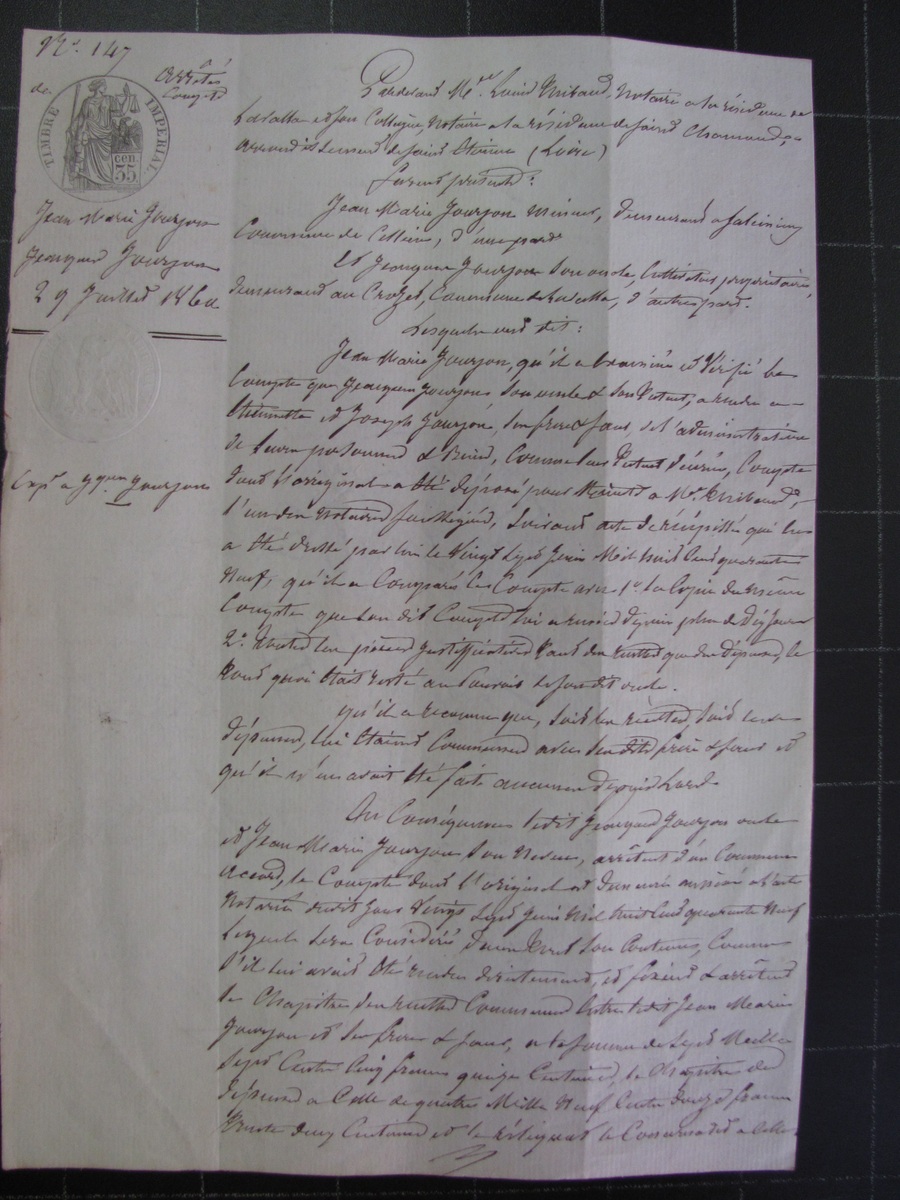 N°. 147
Arrêtés
de Compte
TIMBRE IMPÉRIAL
35 cen.
Jean Marie Jourjon
Jacques Jourjon
29 Juillet 1860
Exp. a Jques Jourjon
Pardevant Me. Louis Thibaud, Notaire a la résidence de
Lavalla et son Collègue Notaire a la résidence de Saint Chamond,
arrondissement de Saint Etienne (Loire)
furent présents:
Jean Marie Jourjon Mineur, demeurant a
Commune de Cellieu, d'une part
Et Jacques Jourjon son oncle, Cultivateur propriétaire,
demeurant au Crozet, Commune de Lavalla, d'autre part.
Lesquels ont dit:
Jean Marie Jourjon, qu'il a examiné et Vérifié le
Compte que Jacques Jourjon son oncle & son Tuteur, a rendu a
Etiennette et Joseph Jourjon, ses frère & sœur, de l'administration
de leurs personnes & Biens, Comme leur Tuteur, Compte
dont l'original a été déposé pour Minute a Me. Thibaud,
l'un des Notaires soussignés, suivant acte de récépissé qui
a été dressé par lui le Vingt Sept Juin Mil huit Cent quarante
Neuf, qu'il a Comparé le Compte avec 1° la Copie du même
Compte que son dit oncle lui a remise depuis plus de dix jours
2° toutes les pièces justificatives tant des recettes que des dépenses, le
tout qui était resté au pouvoir de son dit oncle.
qu'il a reconnu que, soit les recettes, soit les
dépenses, lui étaient Communes avec ses dits frère & sœur et
qu'il n'en avait été fait aucune depuis lors
En Conséquence ledit Jacques Jourjon oncle
et Jean Marie Jourjon son Neveu, arrêtent d'un Commun
Accord, le Compte dont l'original est demeuré annexé a l'acte
Notarié dudit jour Vingt Sept Juin Mil huit Cent quarante Neuf
Lequel sera Considéré dans tout son Contenu, Comme
s'il lui avait été rendu directement, et fixent & arrêtent
le Chapitre des recettes Communes entre ledit Jean Marie
Jourjon et ses frère & sœur, a la somme de Sept Mille
Sept Cents Cinq francs quinze Centimes, le Chapitre des
dépenses a Celle de quatre Mille Neuf Cents Douze francs
trente deux Centimes et le reliquat le Commun a celle